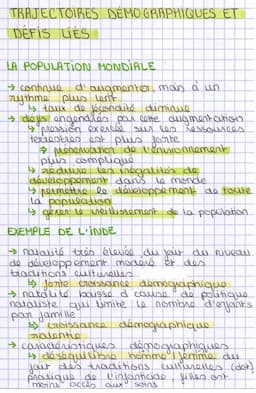 TRAJECTOIRES DÉMOGRAPHIQUES ET
DÉFIS LIÉS
LA POPULATION MONDIALE
→ continue d'augmenter, mais à un
rythme plus lent
↳ taux de fécondité diminue
→ défis engendrés par cette augmentation
↳ pression exercée sur les ressources
terrestres est plus forte
→ préservation de l'environnement
plus compliqué
↳ réduire les inégalités de
développement dans le monde
↳ permettre le développement de toute
la population
↳ gérer le vieillissement de la population
EXEMPLE DE L'INDE
→ natalité très élevée du fait du niveau
de développement modéré et des
traditions culturelles
↳ forte croissance démographique
→ natalité baisse à cause de politique
nataliste qui limite le nombre d'enfants
par famille
↳ croissance démographique
ralentie
→ caractéristiques démographiques
↳ déséquilibre homme/femme du
fait des traditions culturelles (dot)
pratique de l'infanticide, filles ont
moins accès aux soins